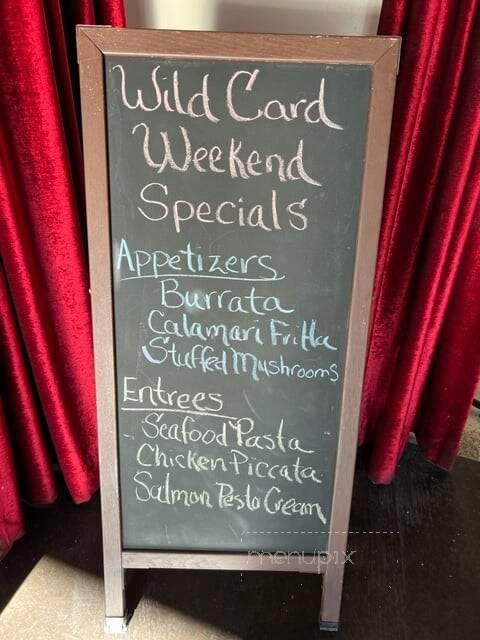 Wild Card
Weekend
Specials
Appetizers
Burrata
Calamari Fritta
Stuffed Mushrooms
Entrees
Seafood Pasta
Chicken Piccata
Salmon Pesto Cream
menupix